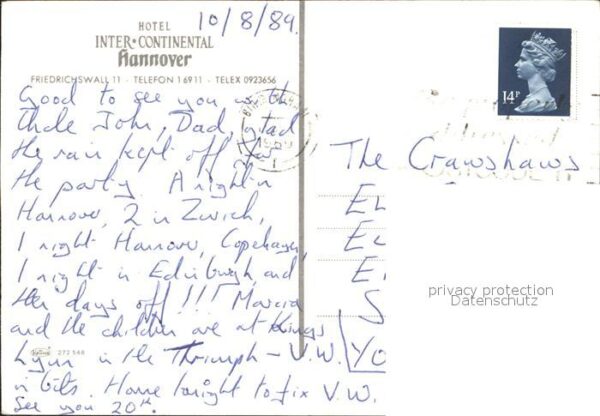 10/8/89.
HOTEL
INTER•CONTINENTAL
Hannover
FRIEDRICHSWALL 11 - TELEFON 1 69 11 - TELEX 0923656
Good to see you with
Uncle John, Dad, glad
the rain kept off for
the party. A night in
Hannover, 2 in Zurich,
1 night Hannover, Copenhagen,
1 night in Edinburgh and
then days off!!! Marcia
and the children are at Kings
Lynn in the Thriumph - V.W.
in bits. Home tonight to fix V.W.
See you 20th.
272 548
14P
The Crawshaws
EL
EL
E
S
YO
privacy protection
Datenschutz